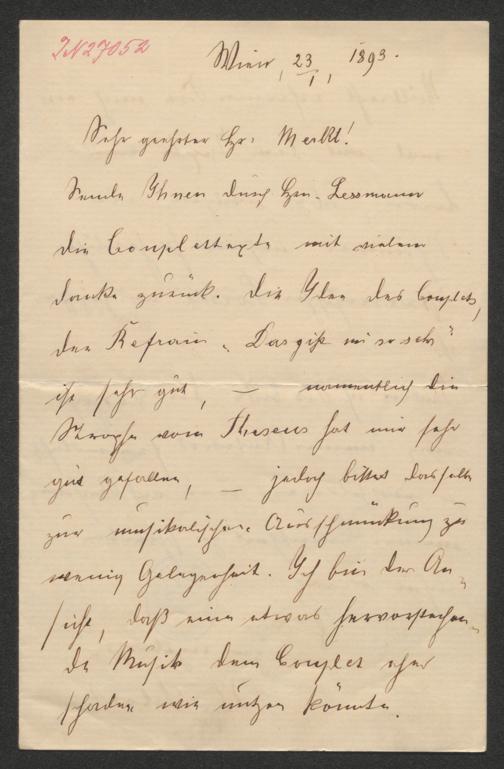 IN27052
Wien, 23/I, 1893.
Sehr geehrter Hr. Merkt!
Sende Ihnen durch Hrn. Lessmann
die Couplettexte mit vielem
Danke zurück. Die Idee des Couplets,
der Refrain „Das gift mi so sehr"
ist sehr gut, — namentlich die
Strophe vom Theseus hat mir sehr
gut gefallen, — jedoch bittet dasselbe
zur musikalischen Ausschmückung zu
wenig Gelegenheit. Ich bin der An-
sicht, daß eine etwas hervorstechen-
de Musik dem Couplet eher
schaden wie nützen könnte.